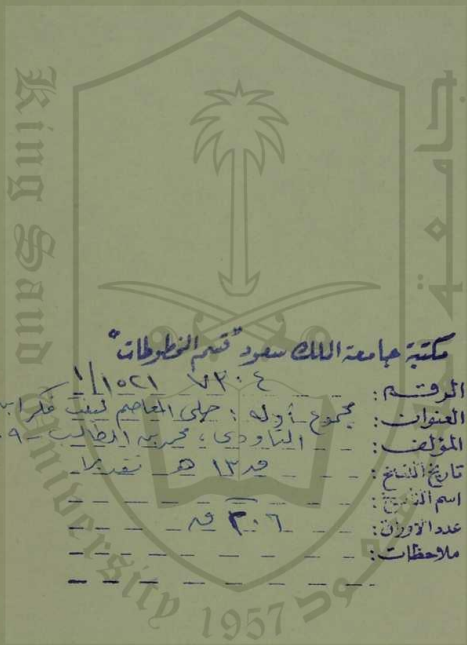 King Saud University
1957
مكتبة جامعة الملك سعود "قسم المخطوطات"
الرقم: ٧٣٠٤ ١/١٥٢١
العنوان: مجموع أوله: حلى المعاصم لبنت فكر ابن
المؤلف: التاودي، محمد بن الطالب - ٩
تاريخ النسخ: ق١٣ هـ تقديرا
اسم الناسخ:
عدد الأوراق: ٣٠٦ ق
ملاحظات: